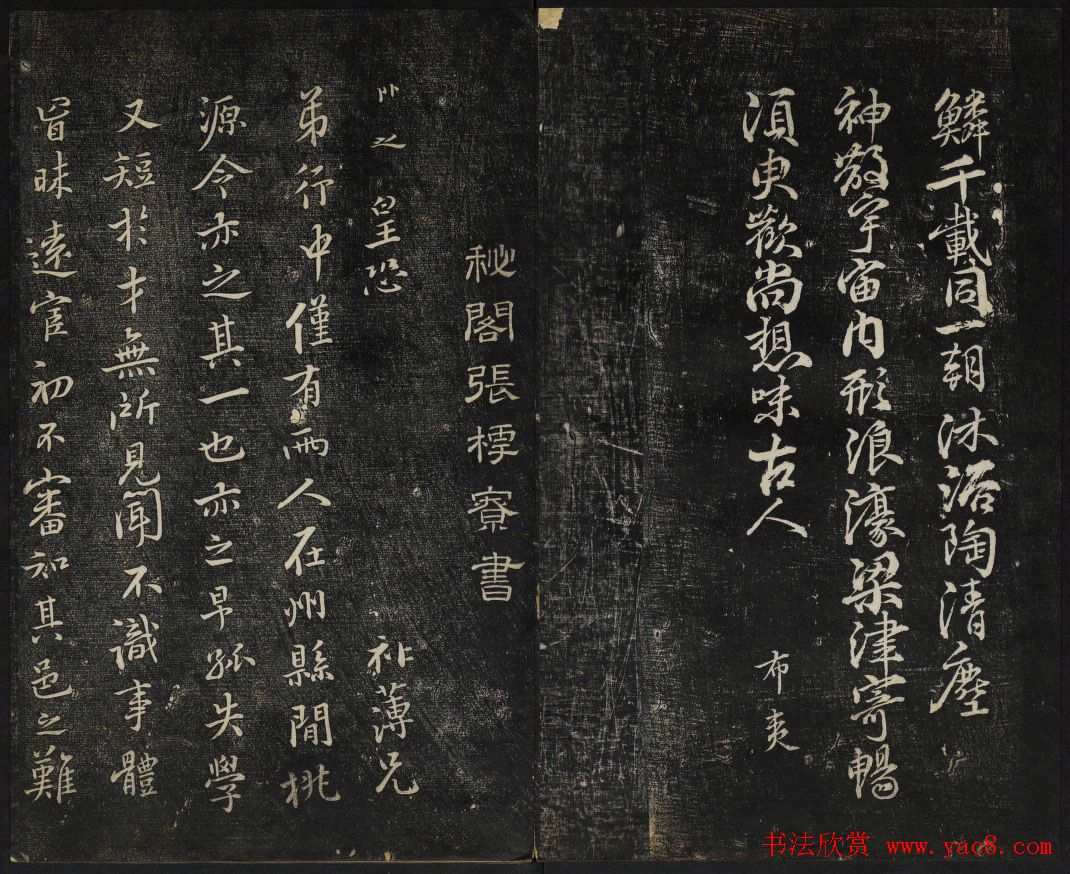 鱗千載同一朝沐浴陶清塵
神散宇宙内形浪濠梁津寄暢
須臾歡尚想味古人 布夷
秘閣張樗寮書
之 皇恐 祚薄兄
弟行中僅有兩人在州縣間桃
源令亦之其一也亦之早孤失學
又短於才無所見聞不識事體
冒昧遠宦初不審知其邑之難
书法欣赏 www.yac8.com